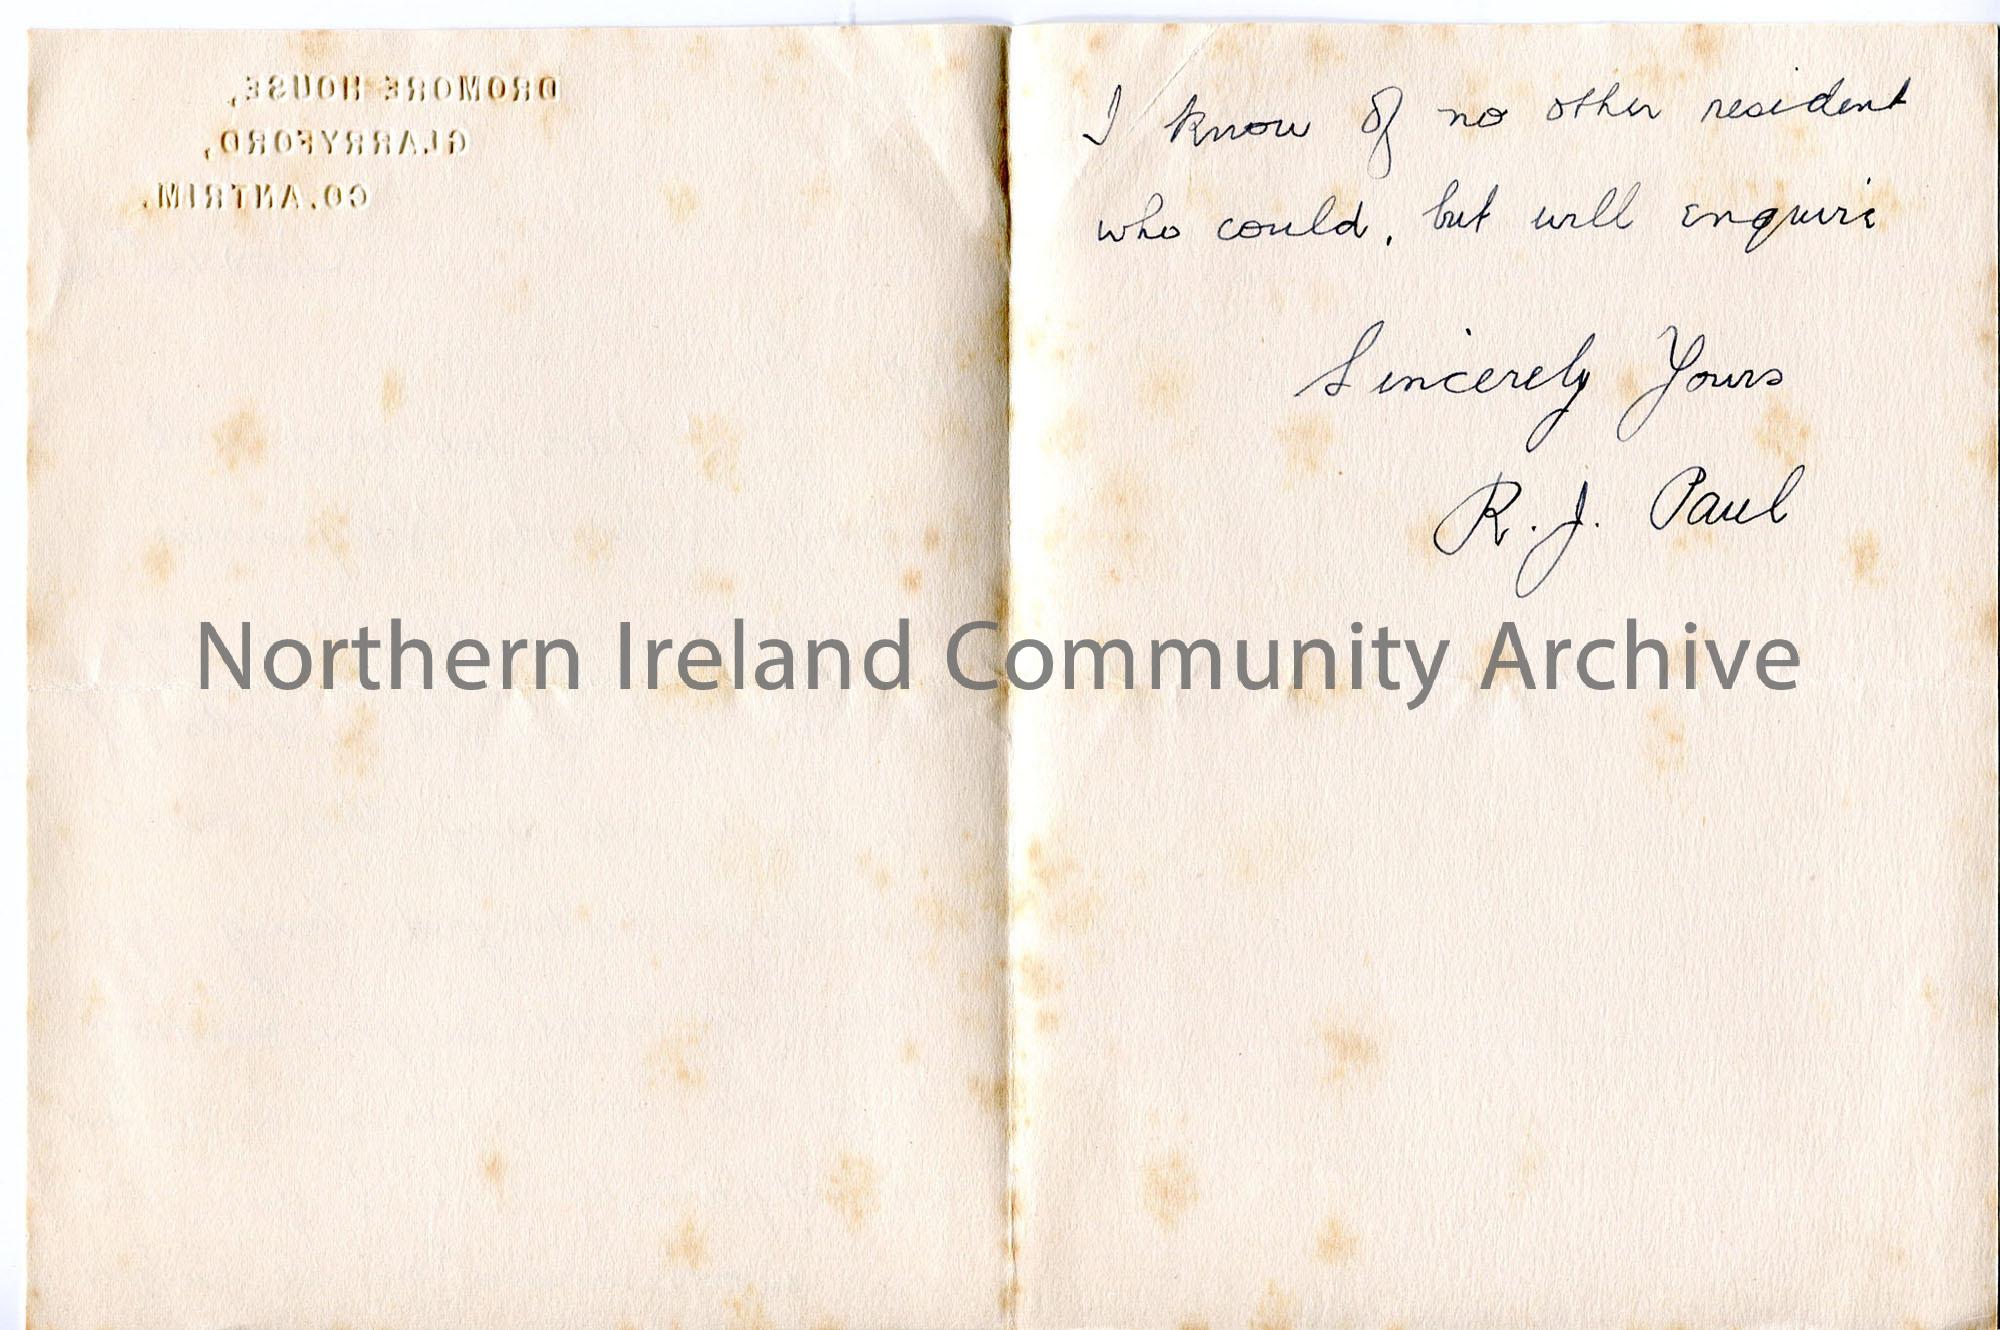 DROMORE HOUSE,
GLARRYFORD,
CO. ANTRIM.
I know of no other resident
who could, but will enquire
Sincerely Yours
R. J. Paul
Northern Ireland Community Archive